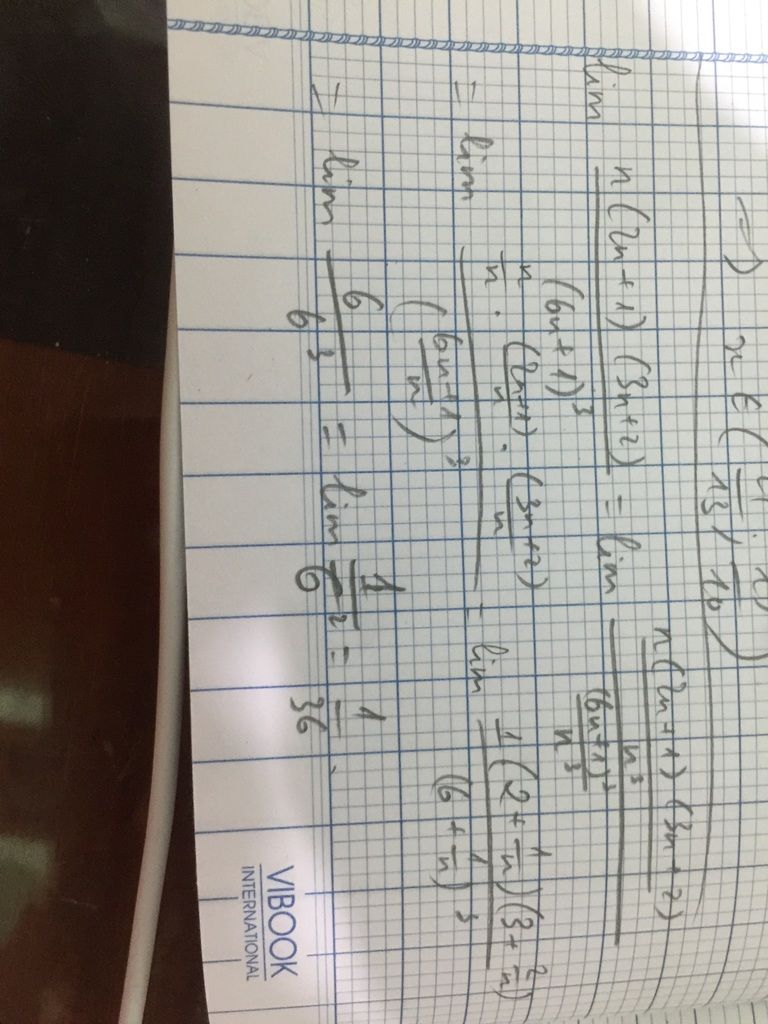 =) x ∈ (
lim n(2n+1)(3n+2) / (6n+1)³ = lim (n(2n+1)(3n+2) / n³) / ((6n+1)³ / n³)
= lim (n/n · (2n+1)/n · (3n+2)/n) / ((6n+1)/n)³ = lim 1(2+1/n)(3+2/n) / (6+1/n)³
= lim 6/6³ = lim 1/6² = 1/36.
VIBOOK
INTERNATIONAL